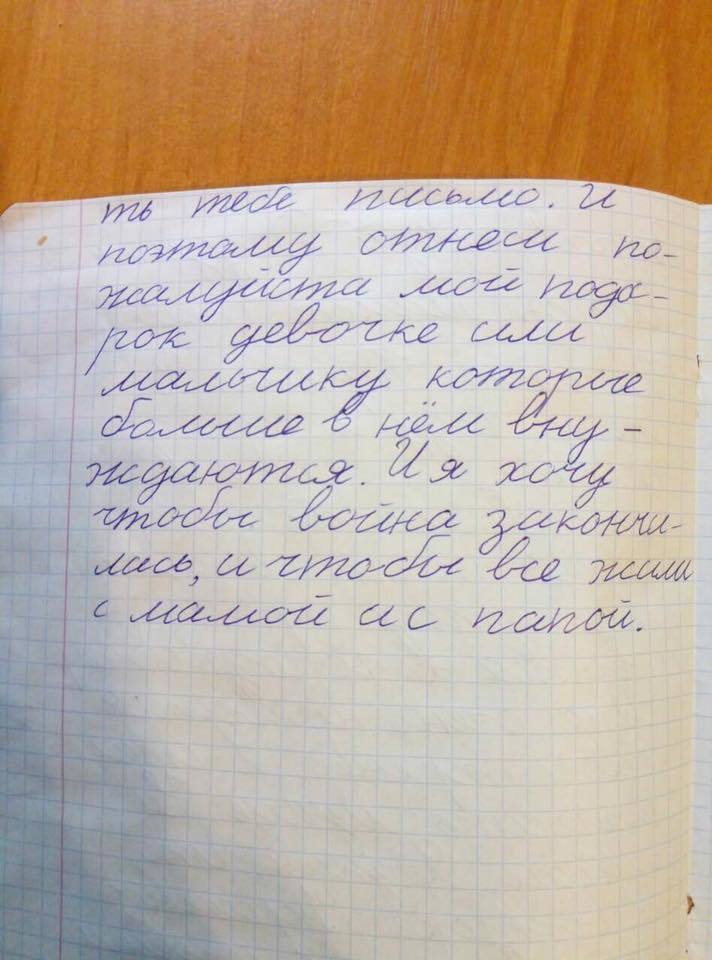 ть тебе письмо. И
поэтому отнеси по-
жалуйста мой пода-
рок девочке или
мальчику которые
больше в нём вну-
ждаются. И я хочу
чтобы война закончи-
лась, и чтобы все жили
с мамой и с папой.